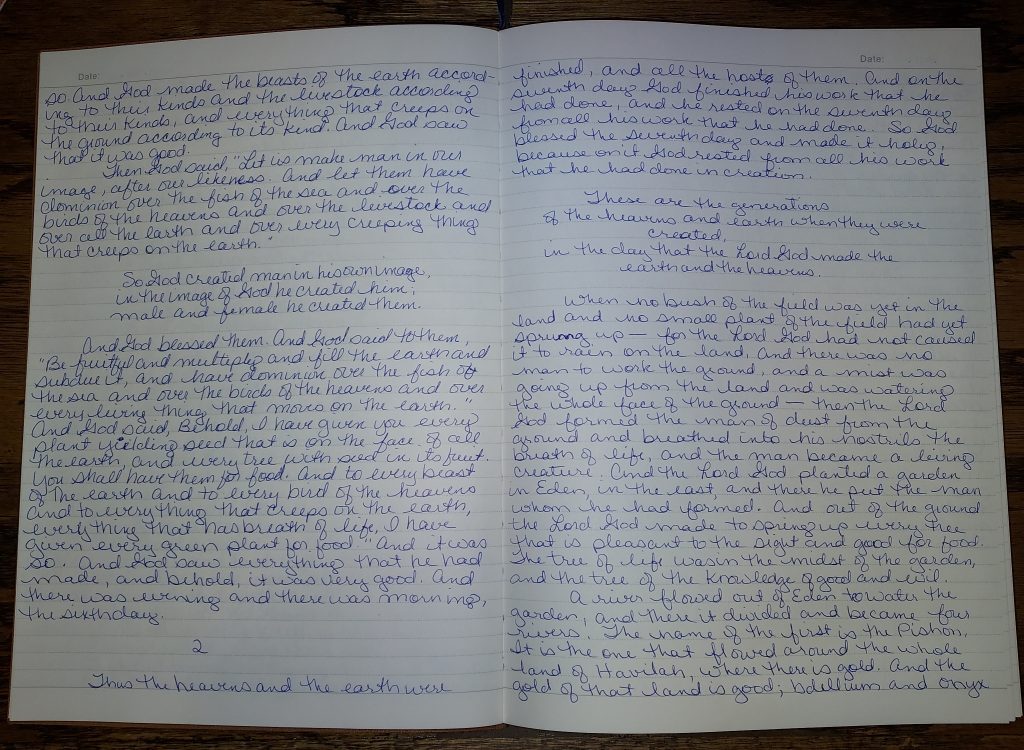 Date:
so. And God made the beasts of the earth accord-
ing to their kinds and the livestock according
to their kinds, and everything that creeps on
the ground according to its kind. And God saw
that it was good.
Then God said, "Let us make man in our
image, after our likeness. And let them have
dominion over the fish of the sea and over the
birds of the heavens and over the livestock and
over all the earth and over every creeping thing
that creeps on the earth."
So God created man in his own image,
in the image of God he created him;
male and female he created them.
And God blessed them. And God said to them,
"Be fruitful and multiply and fill the earth and
subdue it, and have dominion over the fish of
the sea and over the birds of the heavens and over
every living thing that moves on the earth."
And God said, Behold, I have given you every
plant yielding seed that is on the face of all
the earth, and every tree with seed in its fruit.
You shall have them for food. And to every beast
of the earth and to every bird of the heavens
and to everything that creeps on the earth,
everything that has breath of life, I have
given every green plant for food." And it was
so. And God saw everything that he had
made, and behold, it was very good. And
there was evening and there was morning,
the sixth day.
2
Thus the heavens and the earth were
Date:
finished, and all the hosts of them. And on the
seventh day God finished his work that he
had done, and he rested on the seventh day
from all his work that he had done. So God
blessed the seventh day and made it holy,
because on it God rested from all his work
that he had done in creation.
These are the generations
of the heavens and earth when they were
created,
in the day that the Lord God made the
earth and the heavens.
When no bush of the field was yet in the
land and no small plant of the field had yet
sprung up — for the Lord God had not caused
it to rain on the land, and there was no
man to work the ground, and a mist was
going up from the land and was watering
the whole face of the ground — then the Lord
God formed the man of dust from the
ground and breathed into his nostrils the
breath of life, and the man became a living
creature. And the Lord God planted a garden
in Eden, in the east, and there he put the man
whom he had formed. And out of the ground
the Lord God made to spring up every tree
that is pleasant to the sight and good for food.
The tree of life was in the midst of the garden,
and the tree of the knowledge of good and evil.
A river flowed out of Eden to water the
garden, and there it divided and became four
rivers. The name of the first is the Pishon.
It is the one that flowed around the whole
land of Havilah, where there is gold. And the
gold of that land is good; bdellium and onyx